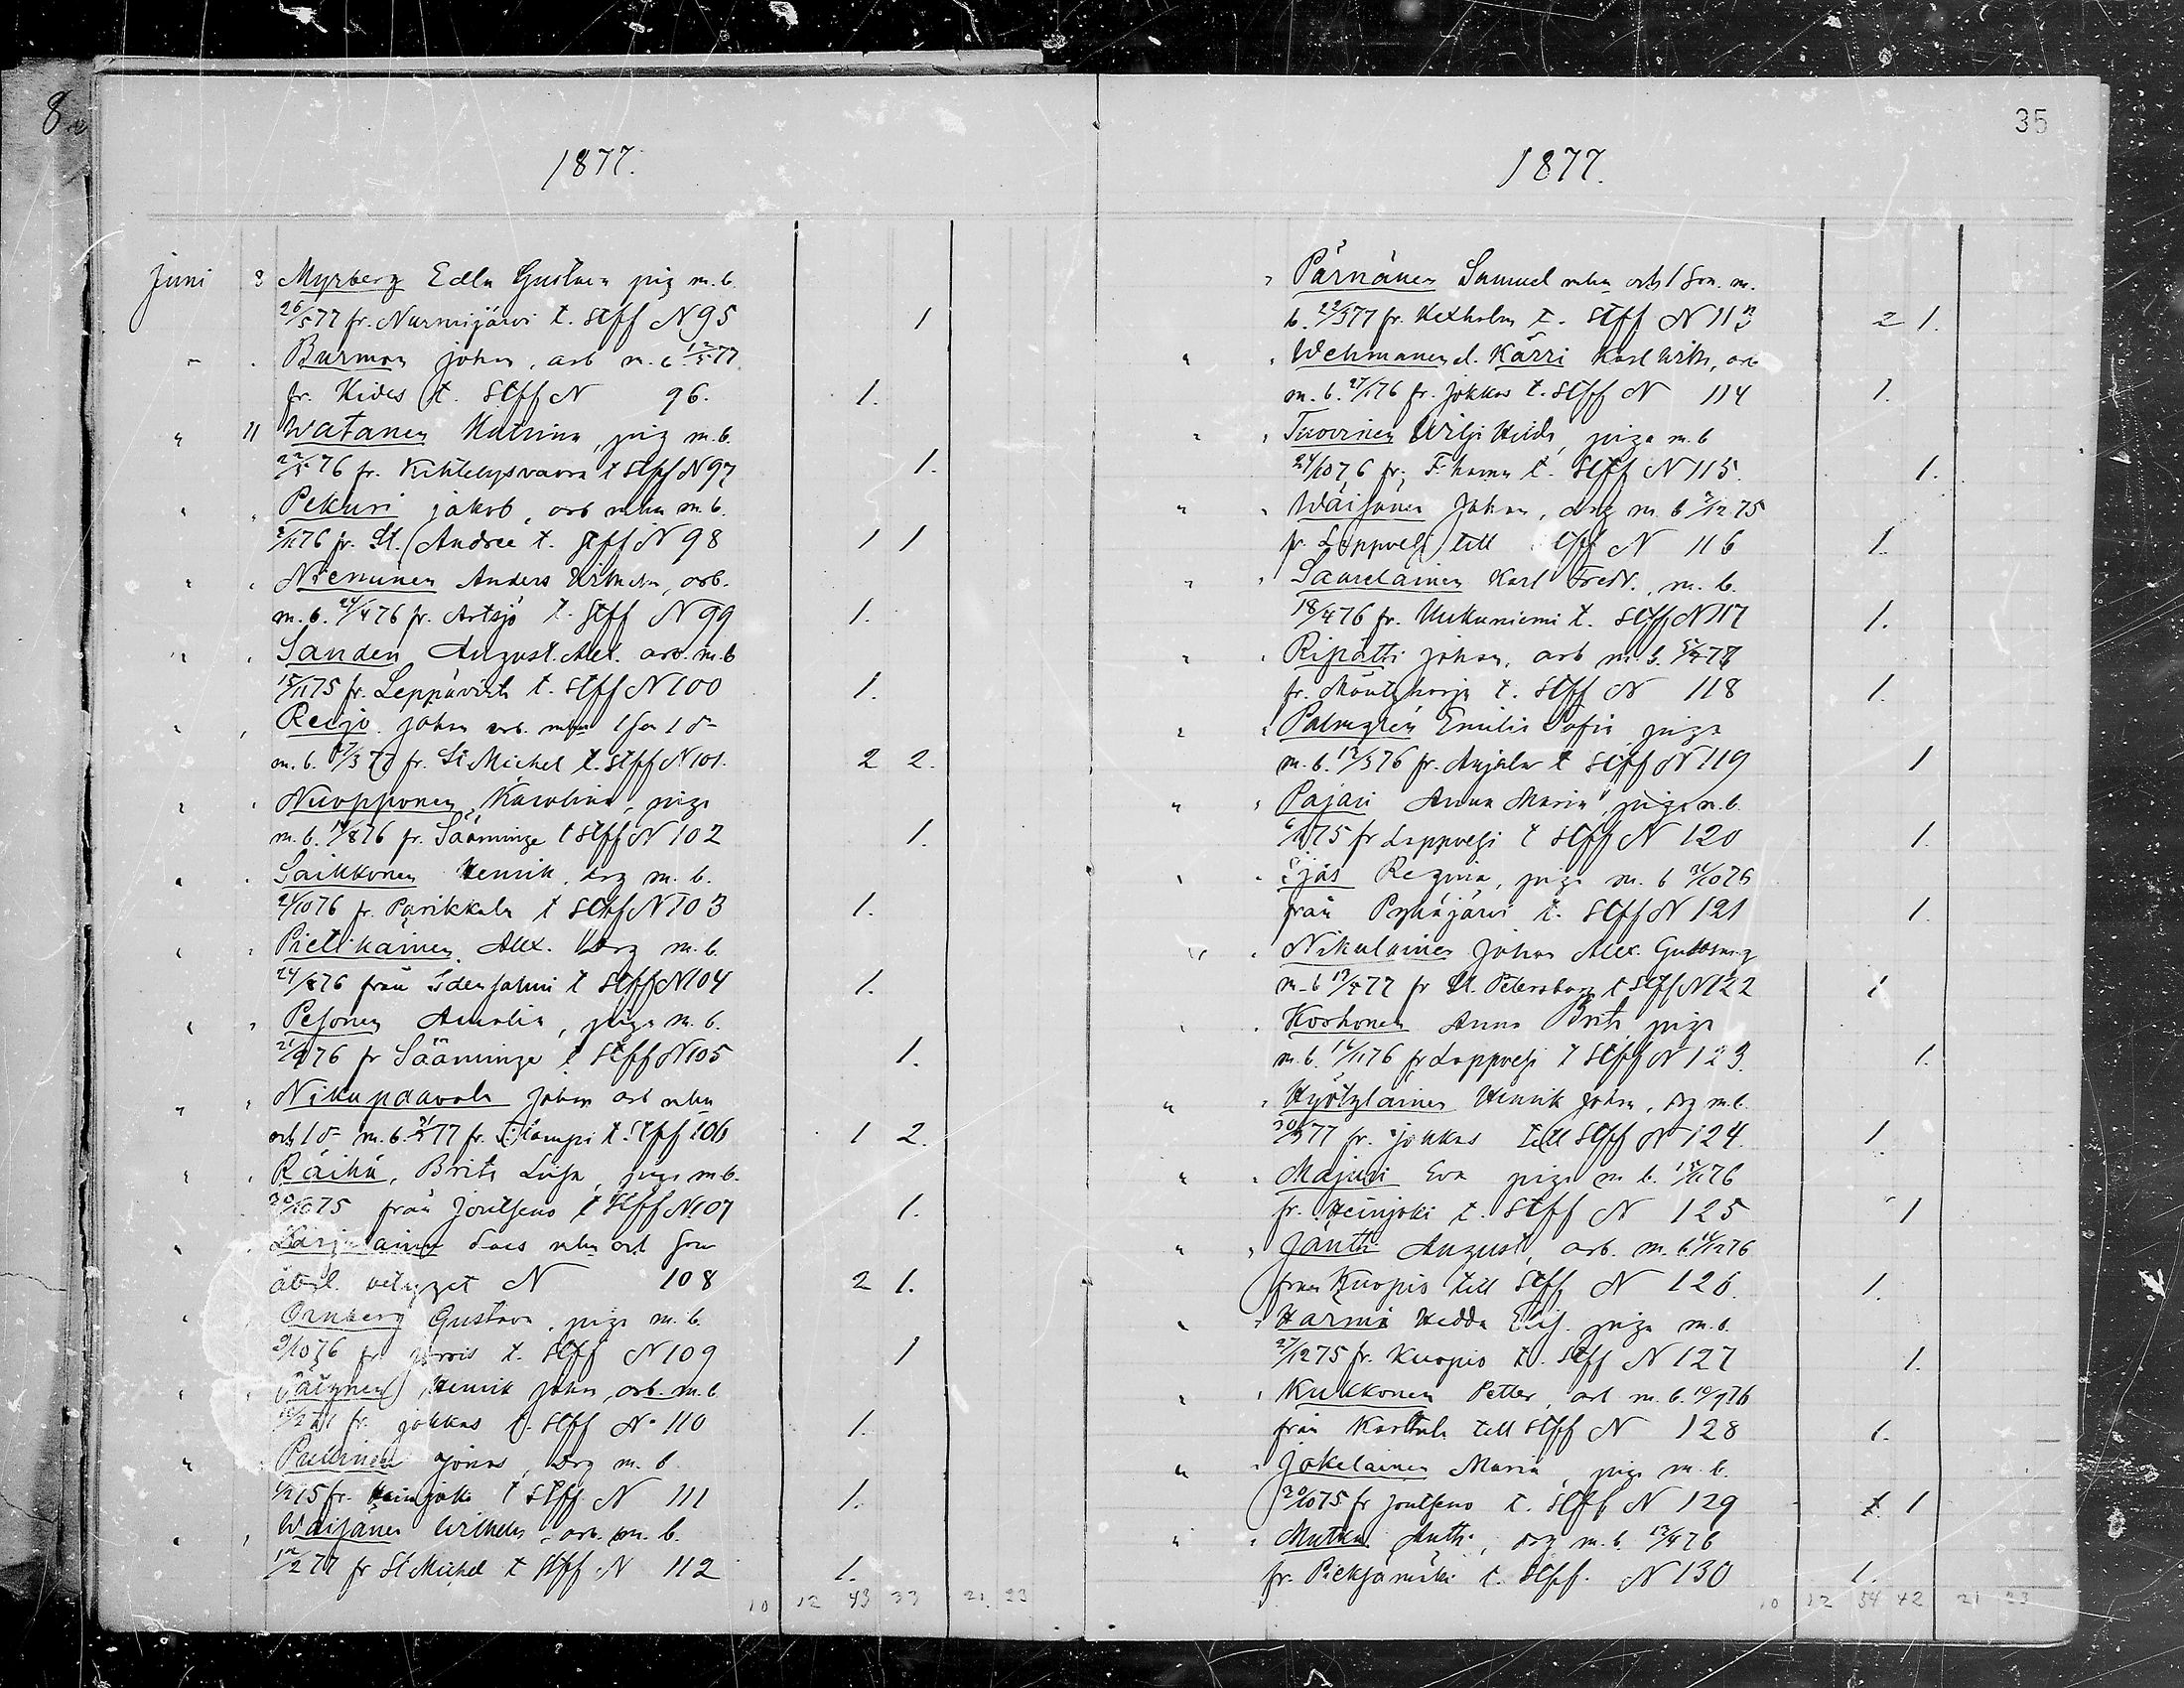 8
35
1877.
Juni 8 Myrberg Edla Gustava pig m.b.
26/5 77 fr. Nurmijärvi t. Stff N 95 1
Burman Johan, arb m.b. 12/5 77
fr. Kides t. Stff N 96. 1.
" 11 Watanen Katrina, pig m.b.
22/5 76 fr. Kihtelysvaara t Stff N 97 1.
" " Pekuri Jakob, arb m.b.
/11 76 fr. St. Andree t. Stff N 98 1 1
" " Nienunen Anders Wilhelm, arb.
m.b. 24/4 76 fr. Artsjö t. Stff N 99 1.
" " Sanden August. Alex. arb. m.b
15/11 75 fr. Leppävirta t. Stff N 100 1.
" " Reijo Johan arb. 1 son 1 dr
m.b. /3 77 fr. St Michel t. Stff N 101. 2 2.
" " Nuopponen, Karolina, piga
m.b. 14/8 76 fr. Sääminge t Stff N 102 1.
" " Saikkonen Henrik, drg m.b.
/10 76 fr. Parikkala t Stff N 103 1.
" " Pietikäinen, Alex. drg m.b.
24/8 76 från Idensalmi t Stff N 104 1.
" " Pesonen Amalia, piga m.b.
21/9 76 fr Sääminge t Stff N 105 1.
" " Nikupaavola Johan arb
och 1 dr m.b. 77 fr. Ilampi t. Stff 106 1 2.
" " Räihä, Brita Lisa, piga m.b.
30/10 75 från Joutseno t Stff N 107 1.
" " son
betyget N 108 2 1.
" " Örnberg Gustava, piga m.b.
9/10 76 fr Jorois t. Stff N 109 1
" " Pätynen, Henrik Johan, arb. m.b.
fr. Jokkas t. Stff N 110 1.
" Paulinen Jonas, drg m.b.
75 fr. Heinjoki t Stff N 111 1.
" " Waisänen Wilhelm, arb. m.b.
12/2 77 fr St Michel t Stff N 112 1.
10 12 43 33 21. 23
1877.
" Pärnänen Samuel och 1 son. m.
b. 22/3 77 fr. Kexholm t. Stff N 113 2 1.
" " Wehmanen el. Kärri Karl Wilh, arb
m.b. 27/1 76 fr. Jokkas t. Stff N 114 1.
" " Tuovinen Hilda, piga m.b
24/10 76 fr. F:hamn t. Stff N 115. 1.
" " Wäisänen Johan, drg m.b 3/12 75
fr. Lappvesi till Stff N 116 1.
" " Saurelainen Karl Fredr., m.b.
18/4 76 fr. Uukuniemi t. Stff N 117 1.
" " Ripatti Johan, arb m.b.
fr. Mäntyharju t. Stff N 118 1.
" " Palmgren Emilia Sofia piga
m.b. 12/5 76 fr. Anjala t Stff N 119 1
" " Pajari Anna Maria piga m.b.
6/1 75 fr Lappvesi t Stff N 120 1.
" " Ijäs Regina, piga m.b 31/10 76
från Pyhäjärvi t. Stff N 121 1.
" " Nikulainen Johan Alex.
m.b 19/4 77 fr St. Petersburg t Stff N 122 1
" " Korhonen Anna Brita piga
m.b. 16/11 76 fr Lappvesi t Stff N 123. 1.
" " Hyötyläinen Henrik Johan, drg m.b.
30/3 77 fr. Jokkas till Stff N 124. 1.
" " Majuri Eva piga m.b. 15/11 76
fr. Heinjoki t. Stff N 125 1
" " Jäntti August, arb. m.b. /12 76
från Kuopio till Stff N 126. 1.
" " Härmä Hedda Elis. piga m.b.
27/12 75 fr. Kuopio t. Stff N 127 1.
" " Kukkonen Petter, arb m.b. 10/9 76
från Karttula till Stff N 128 1.
" " Jokelainen Maria, piga m.b.
30/10 75 fr Joutseno t. Stff N 129 1 1
" " Mutka Antti, drg m.b. 13/4 76
fr. Pieksämäki t. Stff. N 130 1.
10 12 54 42 21 23